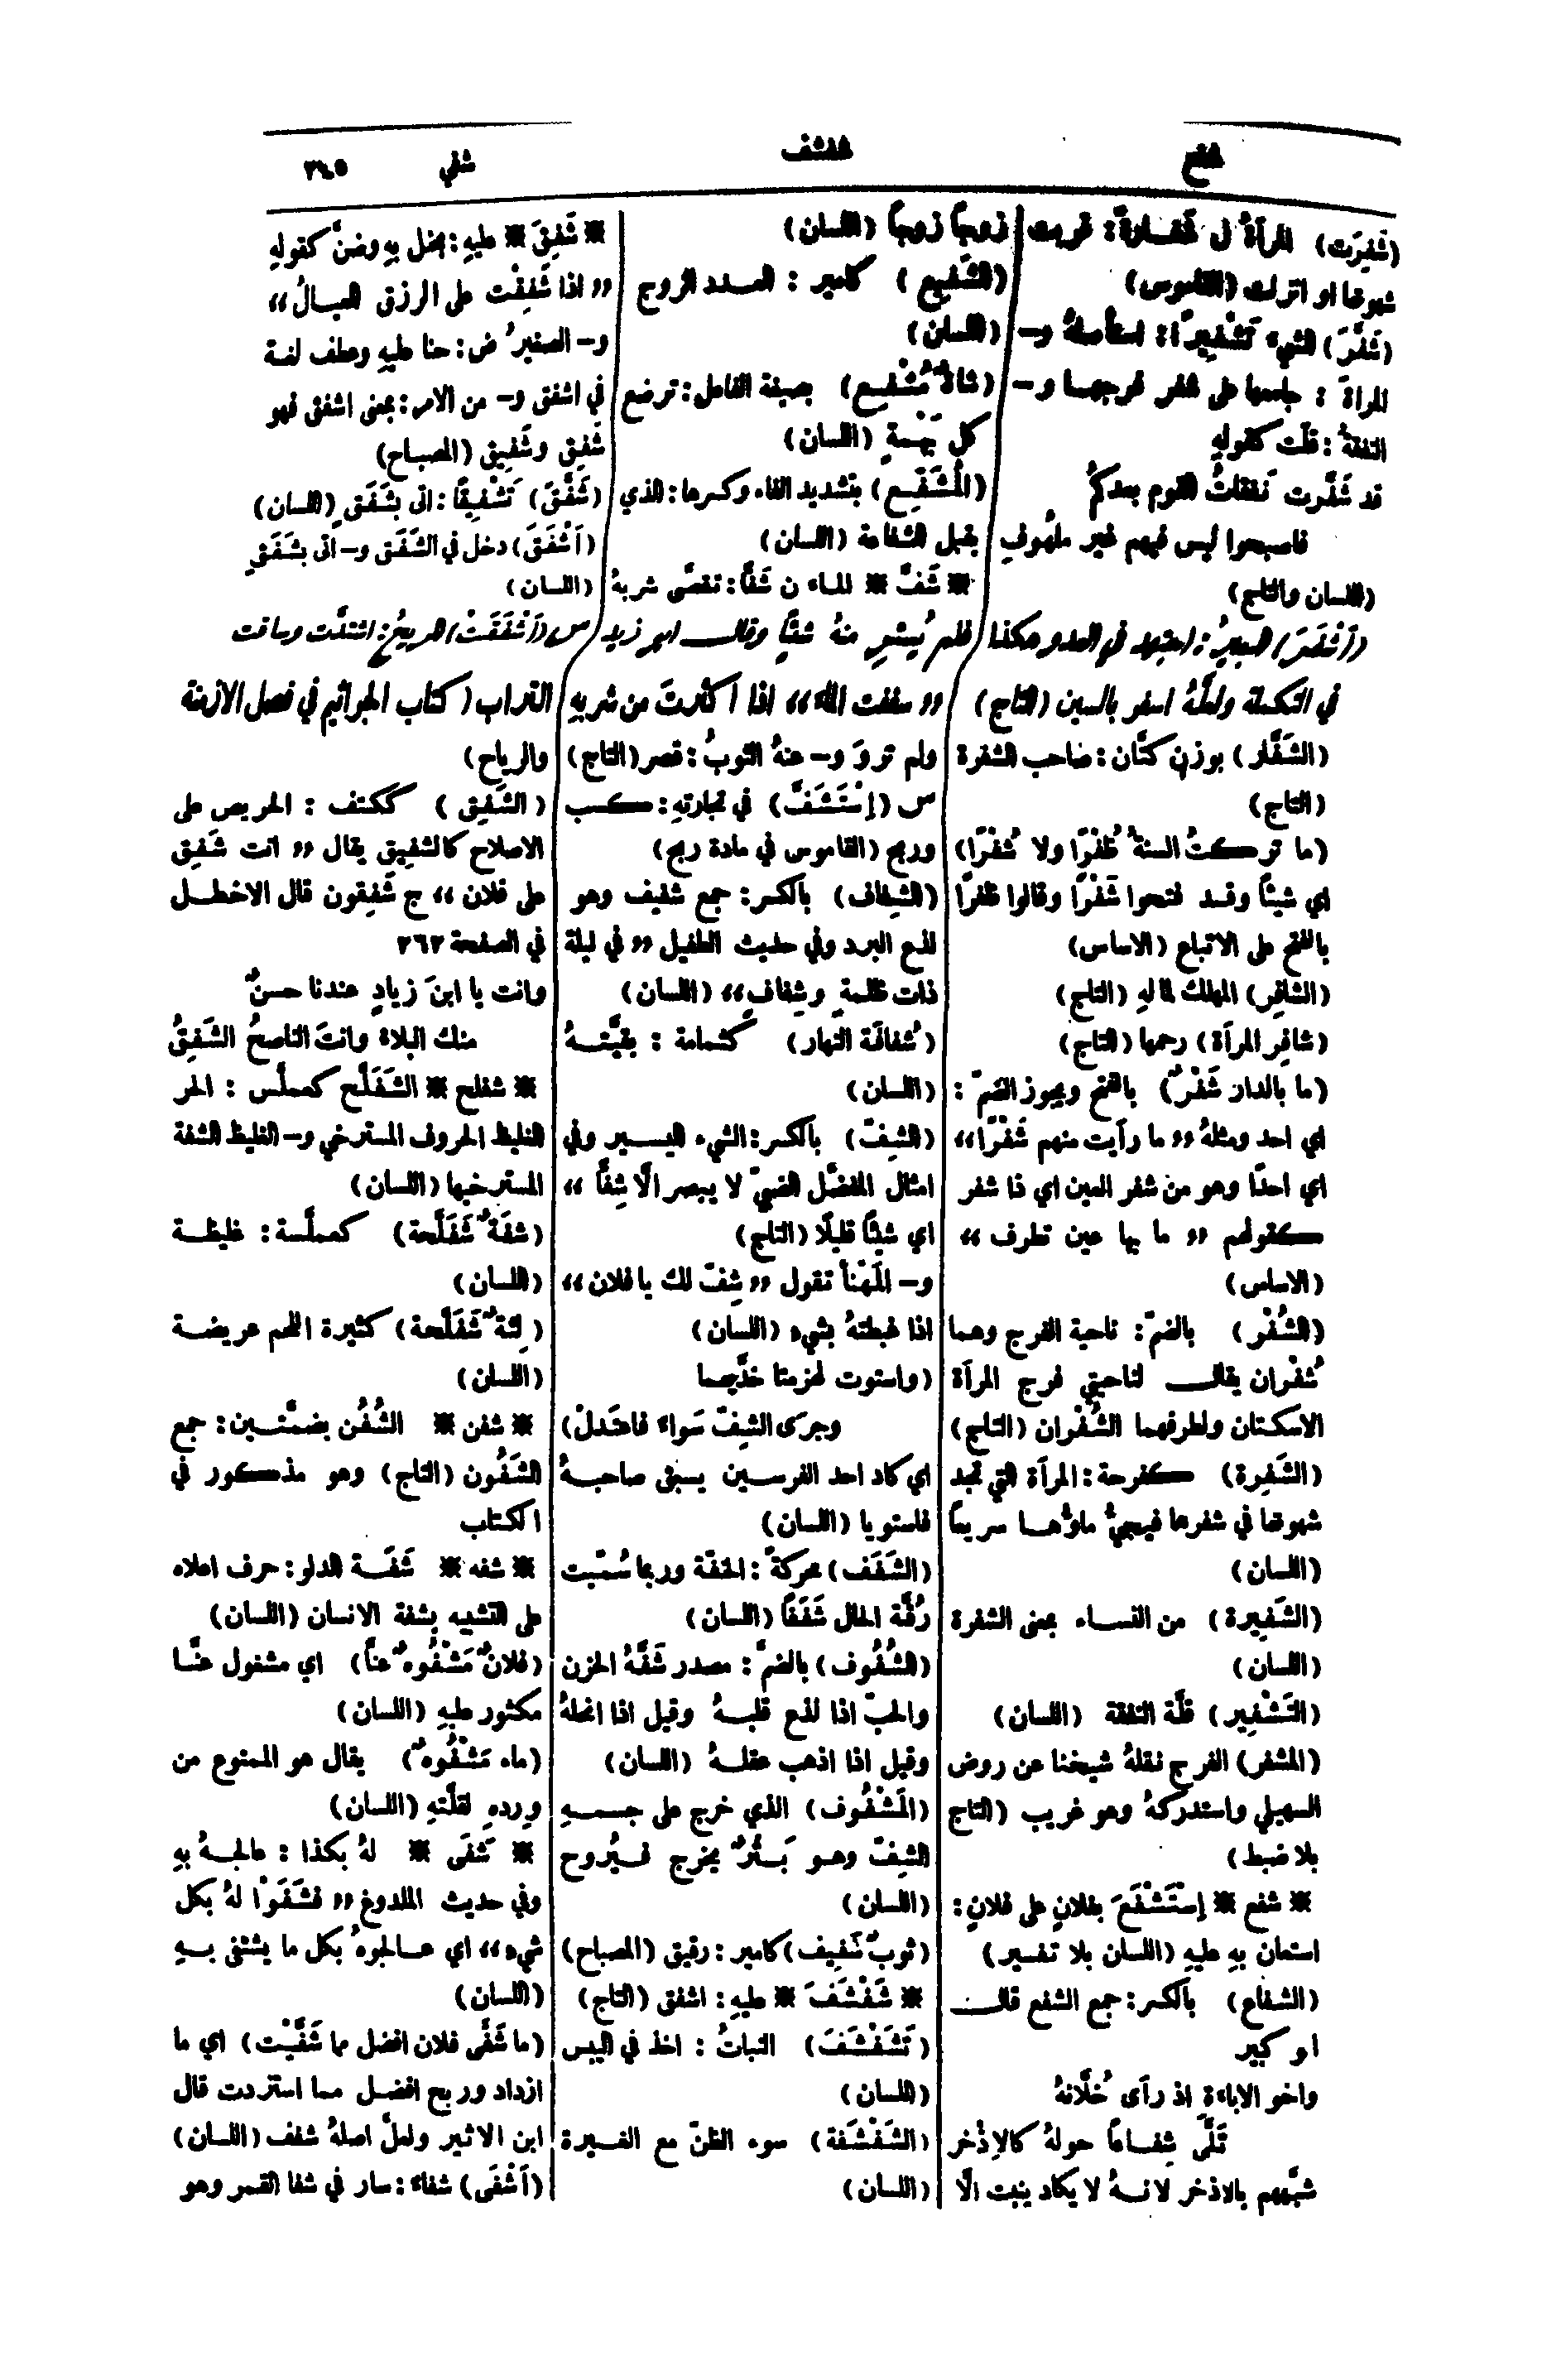 شفع
شفشف
شفي
٣٤٥
(شَفِرَت) المرأَةُ ل شَفَارةً: قربت
شهوتها او انزلت (القاموس)
(شَفَّرَ) الشيءَ تَشْفِيرًا: استأصلهُ و–
المرأة : جامعها على شفر فرجها و–
النفقةُ : قلَّت كقولهِ
قد شَفَّرت نَفَقاتُ القوم بعدكمُ
فاصبحوا ليس فيهم غير ملهوفِ
(اللسان والتاج)
(أَشْفَرَ) البعيرُ: اجتهد في العدو هكذا
في التكملة ولعلَّهُ اسفر بالسين (التاج)
(الشَفَّار) بوزن كتَّان: صاحب الشفرة
(التاج)
(ما تركتُ السنةُ ظُفْرًا ولا شُفْرًا)
اي شيئاً وقد فتحوا شَفْرًا وقالوا ظفرًا
بالفتح على الاتباع (الاساس)
(الشافِر) المهلك لمالهِ (التاج)
(شافِر المرأَة) رحمها (التاج)
(ما بالدار شَفْرٌ) بالفتح ويجوز الضمّ :
اي احد ومثلهُ «ما رأَيت منهم شَفْرًا»
اي احدًا وهو من شفر العين اي ذا شفر
كقولهم «ما بها عين تطرف»
(الاساس)
(الشُفْر) بالضمّ: ناحية الفرج وهما
شُفْران يقال لناحيتي فرج المرأَة
الاسكتان ولطرفهما الشُفْران (التاج)
(الشَفِرة) كفرحة: المرأَة التي تجد
شهوتها في شفرها فيجيءُ ماؤُها سريعاً
(اللسان)
(الشَفِيرة) من النساء بمعنى الشفرة
(اللسان)
(التَشْفِير) قلَّة النفقة (اللسان)
(المشفر) الفرج نقلهُ شيخنا عن روض
السهيلي واستدركهُ وهو غريب (التاج
بلا ضبط)
※ شفع ※ إسْتَشْفَعَ بفلانٍ على فلانٍ:
استعان بهِ عليهِ (اللسان بلا تفسير)
(الشفاع) بالكسر: جمع الشفع قال
ابو كبير
واخو الاباءة اذ رأَى خُلَّانهُ
تَلَّى شِفاعاً حولهُ كالإِذْخر
شبَّههم بالاذخر لانهُ لا يكاد ينبت الَّا
زوجاً زوجاً (اللسان)
(الشَفيع) كامير : العدد الزوج
(اللسان)
(شاةٌ مُشْفِع) بصيغة الفاعل: ترضع
كل بَهْمةٍ (اللسان)
(المُشَفِّع) بتشديد الفاء وكسرها: الذي
يقبل الشفاعة (اللسان)
※ شَفَّ ※ الماءَ ن شَفًّا: تقصَّى شربهُ
فلم يُسْئِر منهُ شيئاً وقال ابو زيد
«سففت الماء» اذا اكثرتَ من شربهِ
ولم تروَ و– عنهُ الثوبُ: قصر (التاج)
س (إِسْتَشَفَّ) في تجارتهِ: كسب
وربح (القاموس في مادة ربح)
(الشِفاف) بالكسر: جمع شفيف وهو
لذع البرد وفي حديث الطفيل «في ليلة
ذات ظلمةٍ وشِفافٍ» (اللسان)
(شُفافَة النهار) كثمامة : بقيَّتهُ
(اللسان)
(الشِفّ) بالكسر: الشيء اليسير وفي
امثال المفضَّل الضبيّ لا يبصر الَّا شِفًّا»
اي شيئاً قليلًا (التاج)
و– المَهْنأ تقول «شِفّ لك يا فلان»
اذا غبطتهُ بشيءٍ (اللسان)
(واستوت لهزمتا خدَّيهما
وجرى الشِفّ سَواءً فاعتدلْ)
اي كاد احد الفرسين يسبق صاحبهُ
فاستويا (اللسان)
(الشَفَف) محركةً: الخفّة وربما سُمّيت
رُقَّة الحال شَفَفًا (اللسان)
(الشُفُوف) بالضمّ: مصدر شَفَّهُ الحزن
والحبّ اذا لذع قلبهُ وقيل اذا انحلهُ
وقيل اذا اذهب عقلهُ (اللسان)
(المَشْفُوف) الذي خرج على جسمهِ
الشِفّ وهو بَثْرٌ يخرج فيُروح
(اللسان)
(ثوبٌ شَفِيف) كامير: رقيق (المصباح)
※ شَفْشَفَ ※ عليهِ: اشفق (التاج)
(تَشَفْشَفَ) النباتُ: اخذ في اليبس
(اللسان)
(الشَفْشَفة) سوء الظنّ مع الغيرة
(اللسان)
※ شَفِقَ ※ عليهِ: بخل بهِ وضنَّ كقولهِ
«اذا شَفِقْت على الرزق العيالُ»
و– الصغيرُ ض: حنا عليهِ وعطف لغة
في اشفق و– من الامر: بمعنى اشفق فهو
شَفِق وشَفِيق (المصباح)
(شَفَّقَ) تَشْفِيقًا: اتى بشَفَقٍ (اللسان)
(اَشْفَقَ) دخل في الشَفَق و– اتى بشَفَقٍ
(اللسان)
س (أَشْفَقَتْ) الريحُ: اشتدَّت وساقت
التراب (كتاب الجراثيم في فصل الازمنة
والرياح)
(الشَفِق) ككتف : الحريص على
الاصلاح كالشفيق يقال «انت شَفِق
على فلان» ج شَفِقون قال الاخطل
في الصفحة ٢٦٢
وانت يا ابنَ زيادٍ عندنا حسنٌ
منك البلاءُ وانتَ الناصحُ الشَفِقُ
※ شفلح ※ الشَفَلَّح كعملَّس : الحر
الغليظ الحروف المسترخي و– الغليظ الشفة
المسترخيها (اللسان)
(شفَةٌ شَفَلَّحة) كعملَّسة: غليظة
(اللسان)
(لِثةٌ شَفَلَّحة) كثيرة اللحم عريضة
(اللسان)
※ شفن ※ الشُفُن بضمَّتين: جمع
الشَفُون (التاج) وهو مذكور في
الكتاب
※ شفه ※ شَفَة الدلو: حرف اعلاه
على التشبيه بشفة الانسان (اللسان)
(فلانٌ مَشْفُوهٌ عنَّا) اي مشغول عنَّا
مكثور عليهِ (اللسان)
(ماء مَشْفُوهٌ) يقال هو الممنوع من
وِردهِ لقلَّتهِ (اللسان)
※ شَفَى ※ لهُ بكذا : عالجهُ بهِ
وفي حديث الملدوغ «فشَفَوْا لهُ بكل
شيء» اي عالجوهُ بكل ما يشتفى بهِ
(اللسان)
(ما شَفَّى فلان افضل مما شَفَّيْت) اي ما
ازداد وربح افضل مما استزدت قال
ابن الاثير ولعلَّ اصلهُ شفف (اللسان)
(اَشْفَى) شفاءً: سار في شفا القمر وهو